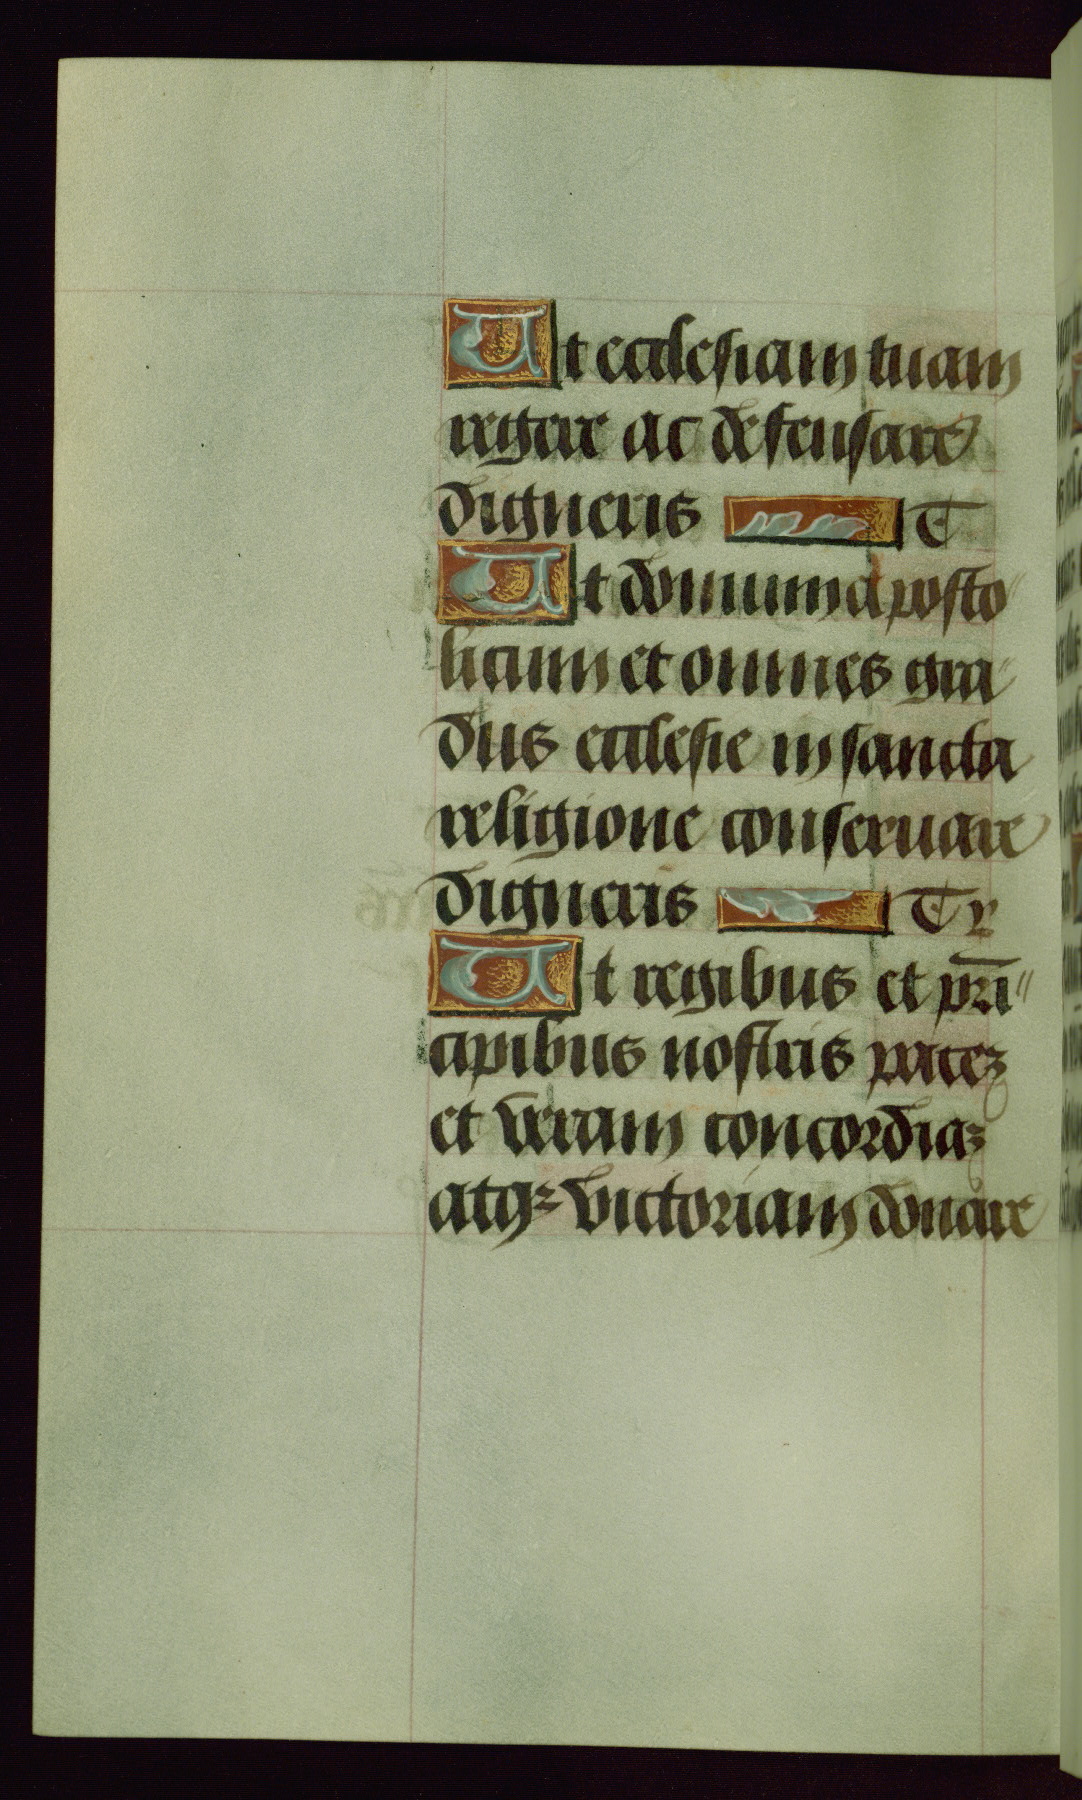 Ut ecclesiam tuam
regere ac defensare
digneris T
Ut domnum aposto
licum et omnes gra
dus ecclesie in sancta
religione conseruare
digneris Tr
Ut regibus et pri̅
cipibus nostris pacez
et veram concordiaz
atqz victoriam donare